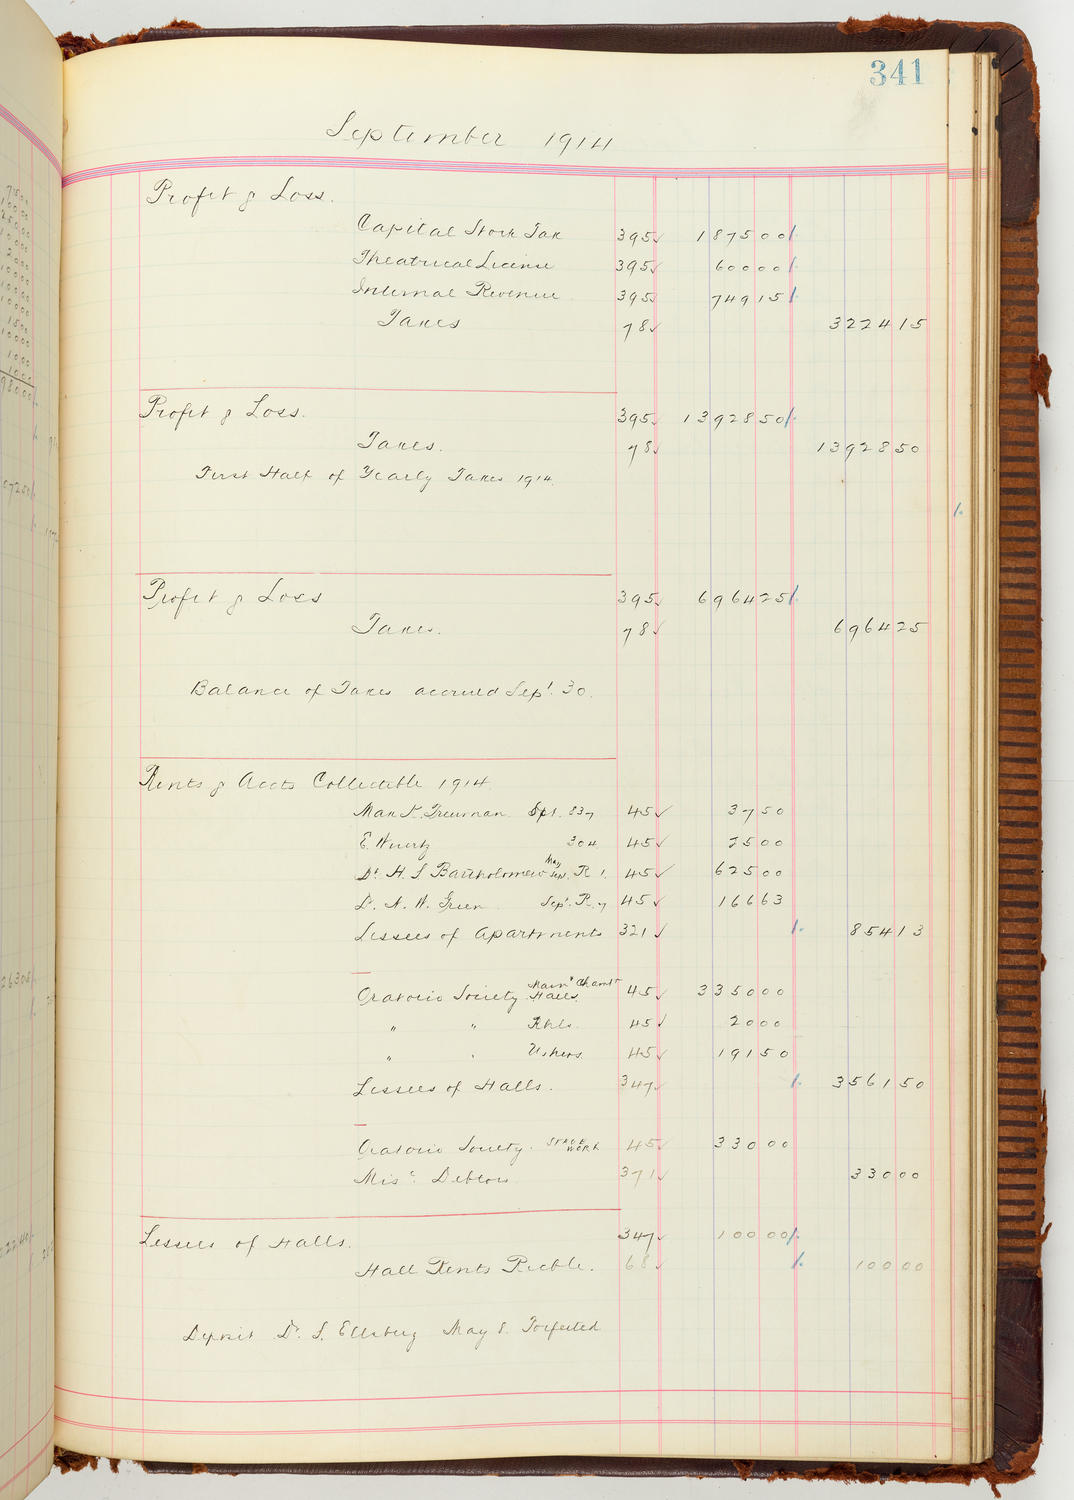 341
September 1914
Profit & Loss.
Capital Stock Tax 395 ✓ 1875 00
Theatrical License 395 ✓ 600 00
Internal Revenue 395 749 15
Taxes 78 ✓ 3224 15
Profit & Loss. 395 ✓ 13928 50
Taxes. 78 ✓ 13928 50
First Half of Yearly Taxes 1914.
Profit & Loss 395 ✓ 6964 25
Taxes. 78 ✓ 6964 25
Balance of Taxes accrued Sept. 30.
Rents & Accts Collectible 1914.
Max K. Freeman. Spt. 837 45 ✓ 37 50
E. Wurtz 304 45 ✓ 25 00
Dr. H. S Bartholomew May Sep. R 1. 45 ✓ 625 00
Dr. N. W. Green Sept. R. 7 45 ✓ 166 63
Lessees of Apartments 321 ✓ 854 13
Oratorio Society Main & Chambr Halls. 45 ✓ 3350 00
" " Rhls. 45 ✓ 20 00
" " Ushers 45 ✓ 191 50
Lessees of Halls. 347 ✓ 3561 50
Oratorio Society. STAGE WORK 45 ✓ 330 00
Misc. Debtors 371 ✓ 330 00
Lessees of Halls. 347 ✓ 100 00
Hall Rents Rcble. 68 ✓ 100 00
Deposit Dr. S. Ellsberg May 8. Forfeited